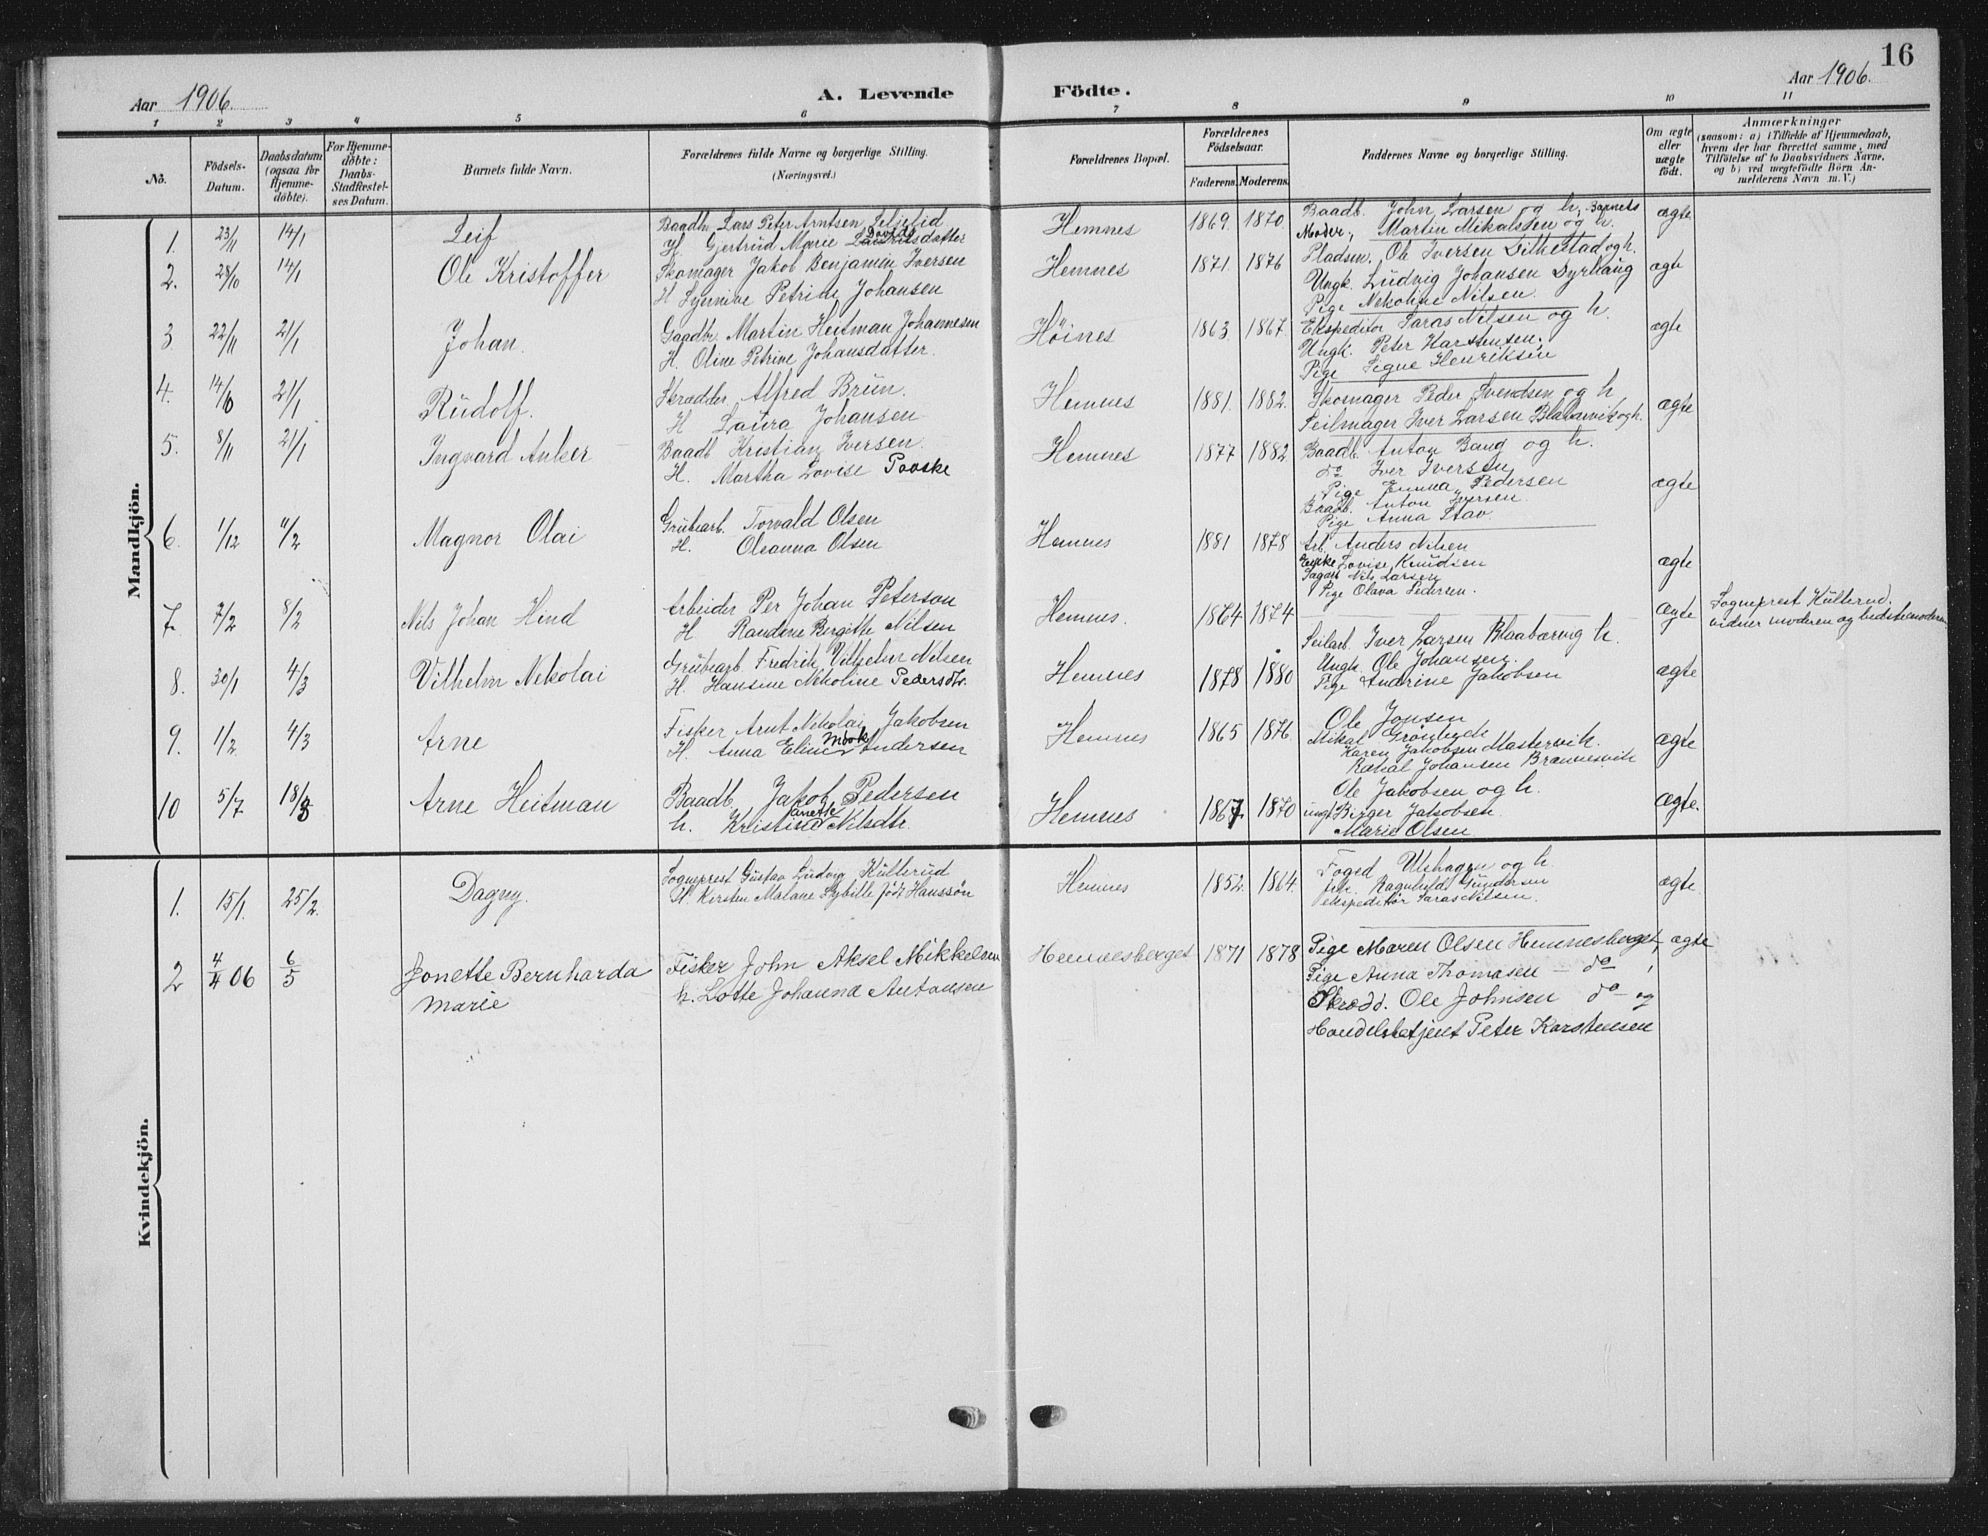 16
Aar 1906.
A. Levende Födte.
Aar 1906.
1 2 3 4 5 6 7 8 9 10 11
No.
Födsels-Datum.
Daabsdatum (ogsaa for Hjemme-døbte).
For Hjemme-døbte: Daabs-Stadfæstel-ses Datum.
Barnets fulde Navn.
Forældrenes fulde Navne og borgerlige Stilling.
(Næringsvei.)
Forældrenes Bopæl.
Forældrenes Födselsaar.
Faderens. Moderens.
Faddernes Navne og borgerlige Stilling.
Om ægte eller uægte födt.
Anmærkninger
(saasom: a) i Tilfælde af Hjemmedaab,
hvem der har forrettet samme, med
Tilföielse af to Daabsvidners Navne,
og b) ved uægtefödte Börn An-
melderens Navn m. V.)
Mandkjön.
1. 23/11 14/1 Leif Baadb. Lars Peter Arntsen Seljelid Hemnes 1869. 1870. Baadb. John Larsen og h, Barnets ægte
H. Gjertrud Marie Davidsdatter Moder, Martin Mikalsen og h.
2. 23/10 14/1 Ole Kristoffer Skomager Jakob Benjamin Iversen Hemnes 1871. 1876 Pladsm. Ole Iversen og h. ægte
H. Petrine Johansen Ungk. Ludvig Johansen Dyrhaug
Pige Nekoline Nilsen.
3 22/11 21/1 Johan. Gaadbr. Martin Heitman Johannesen Höines 1863 1867. Ekspeditor Saras Nilsen og h. ægte
H. Oline Petrine Johansdatter. Ungk. Peter Karstensen.
Pige Signe Henriksen
4. 14/10 21/1 Rudolf. Skrædder Alfred Brun. Hemnes 1881. 1882. Skomager Peder Svendsen og h ægte
H Laura Johansen Seilmager Iver Larsen Blabærvik og h.
5. 8/11 21/1 Ingvard Anker Baadb Kristian Iversen Hemnes 1877 1882 Baadb. Anton Bang og h.
H. Martha Lovise Paaske do Iver Iversen
Pige Emma Pedersen ægte
Baadb. Anton Iversen.
Pige Anna Stav.
6. 1/12 4/2 Magnor Olai Grubearb. Torvald Olsen Hemnes 1881 1878 Arb. Anders Nilsen
H. Oleanna Olsen Enke Lovise Knudsen ægte
Sagarb Nils Larsen
Pige Olava Pedersen.
7. 7/2 8/2 Nils Johan Hind Arbeider Per Johan Peterson Hemnes. 1864 1874 ægte Sogneprest Kulterud.
H Randine Bergitte Nilsen vidner moderen og bedstemoderen
8. 30/1 4/3 Vilhelm Nekolai Grubearb Fredrik Vilhelm Nilsen Hemnes 1878 1880 Seilarb. Iver Larsen Blaabærvig h. ægte
H. Hansine Nikoline Pedersdtr. Ungk. Ole Johansen.
Pige Andrine Jakobsen
9. 1/2 4/3 Arne Fisker Arnt Nikolai Jakobsen Hemnes 1865 1876. Ole Jonsen ægte
H. Anna Eline Andersen Mikal
Karen Jakobsen Mastervik.
Rakal Johansen
10 5/7 18/3 Arne Heitman Baadb. Jakob Pedersen Hemnes 1867 1870 Ole Jakobsen og h. ægte.
h. Kristine Anette Nilsdtr. ungk Birger Jakobsen.
Marie Olsen
Kvindekjön.
1. 15/1. 25/2. Dagny. Sogneprest Gustav Ludvig Kulterud Hemnes 1852. 1864. Foged og h. ægte
H. Kirsten Malane Sybille föd Hanssön frk. Ragnhild Gundersen
ekspeditör Saras Nilsen.
2 4/4 06 6/5 Jonette Bernharda Fisker John Aksel Mikkelsen Hemnesberget 1871 1878 Pige Maren Olsen Hemnesberget, ægte
Marie h. Lotte Johanna Antonsen Pige Anna Thomasen — do — ,
Skrædd. Ole Johnsen do — og
Handelsbetjent Peter Karstensen